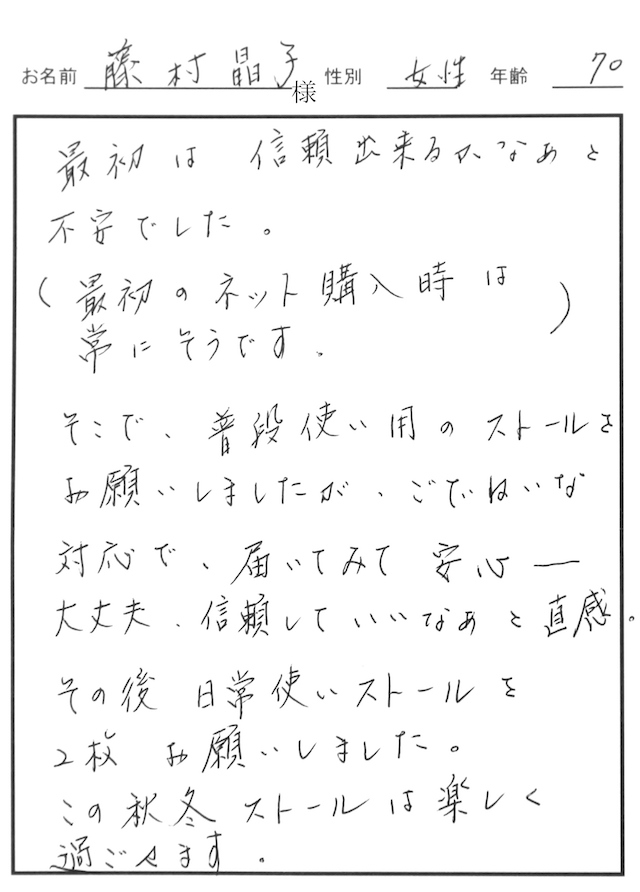 お名前 藤村晶子様 性別 女性 年齢 70
最初は 信頼出来るかなぁと
不安でした。
(最初のネット購入時は
常にそうです、)
そこで、普段使い用のストールを
お願いしましたが、ごていねいな
対応で、届いてみて 安心ー
大丈夫、信頼していいなぁと直感。
その後 日常使いストールを
2枚 お願いしました。
この秋冬ストールは楽しく
過ごせます。